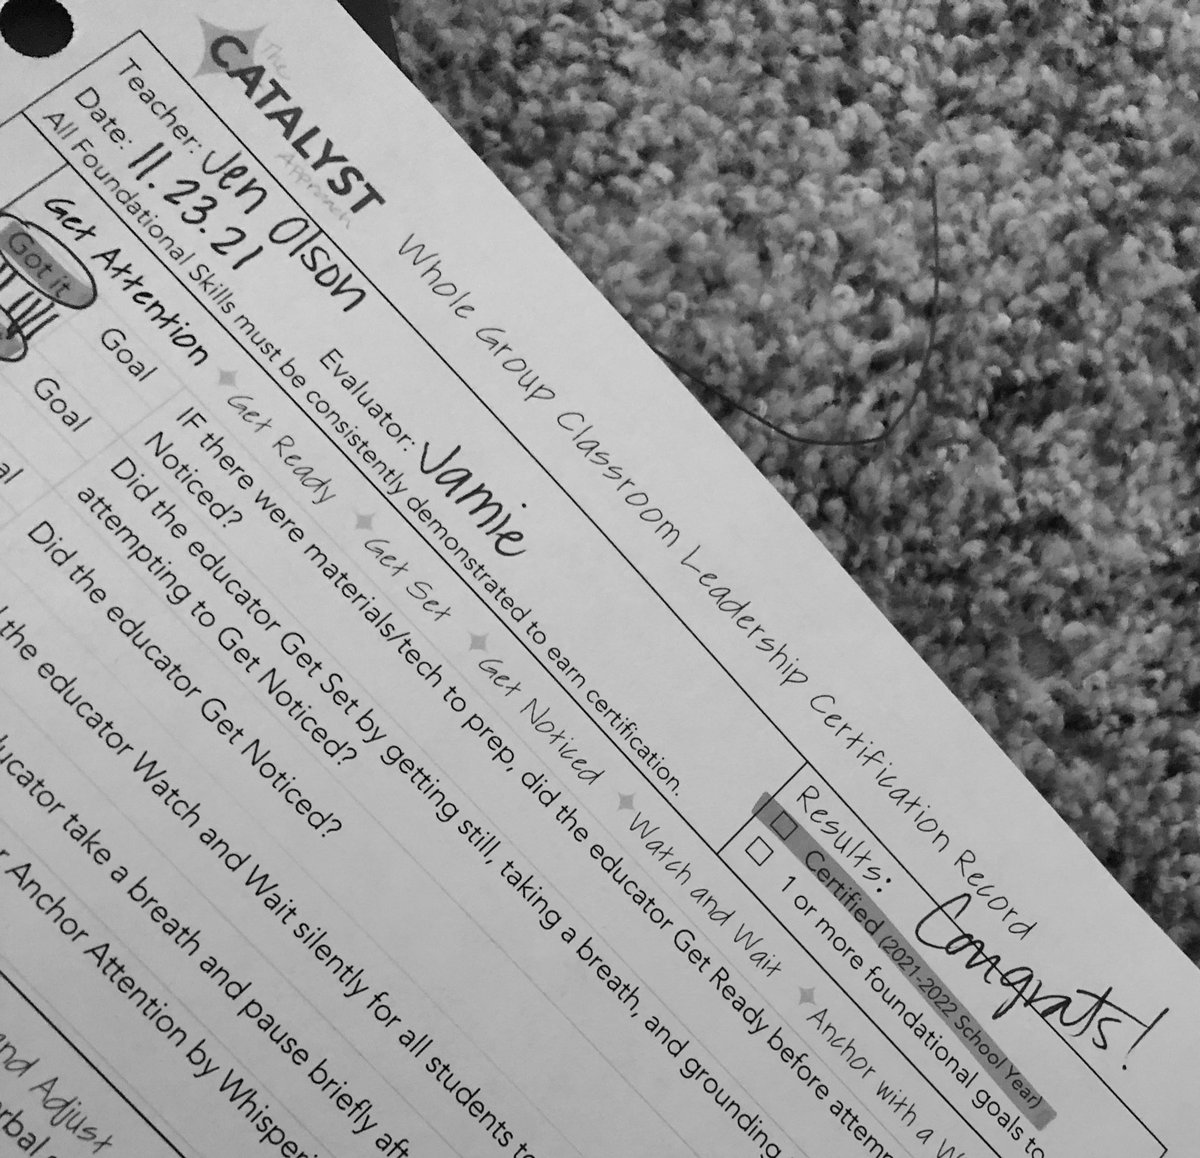 The
CATALYST
Approach
Whole Group Classroom Leadership Certification Record
Teacher: Jen Olson
Evaluator: Jamie
Results: Congrats!
Date: 11.23.21
Certified (2021-2022 School Year)
All Foundational Skills must be consistently demonstrated to earn certification.
1 or more foundational goals to
Get Attention Get Ready Get Set Get Noticed Watch and Wait Anchor with a W
Got it
Goal
IF there were materials/tech to prep, did the educator Get Ready before attem
Noticed?
Goal
Did the educator Get Set by getting still, taking a breath, and grounding
attempting to Get Noticed?
al
Did the educator Get Noticed?
the educator Watch and Wait silently for all students to
ucator take a breath and pause briefly aft
r Anchor Attention by Whisperi
end Adjust
rbal